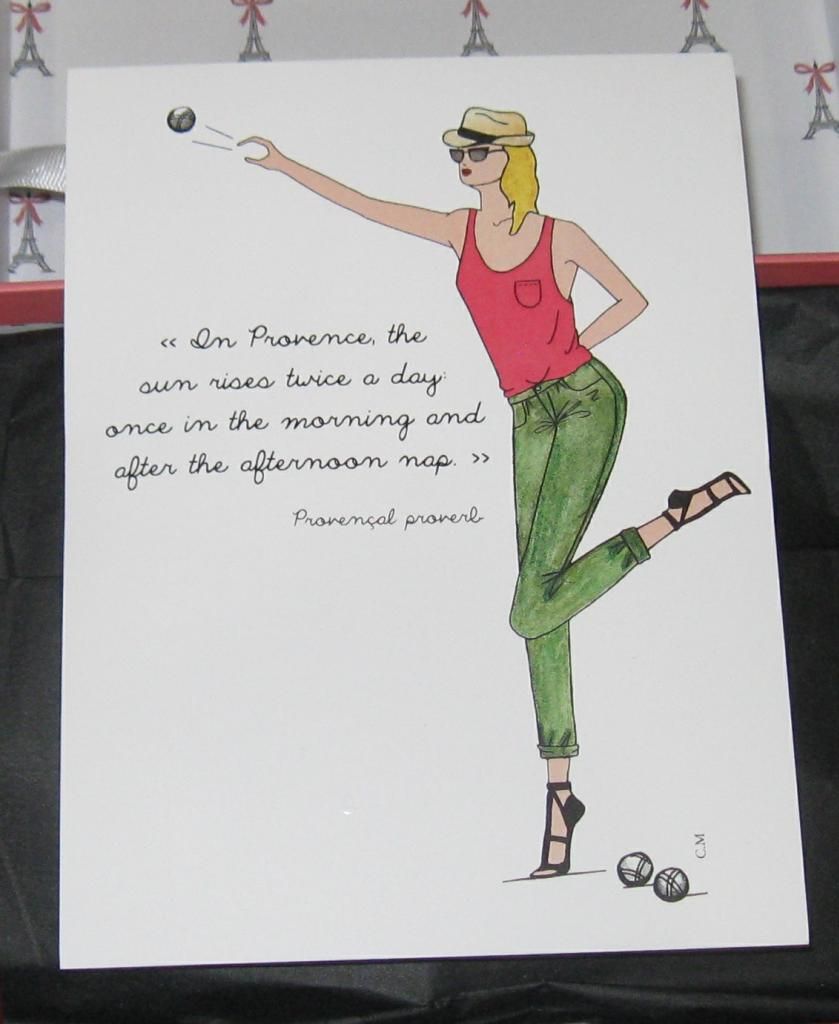 « In Provence, the
sun rises twice a day:
once in the morning and
after the afternoon nap. »
Provençal proverb
C.M